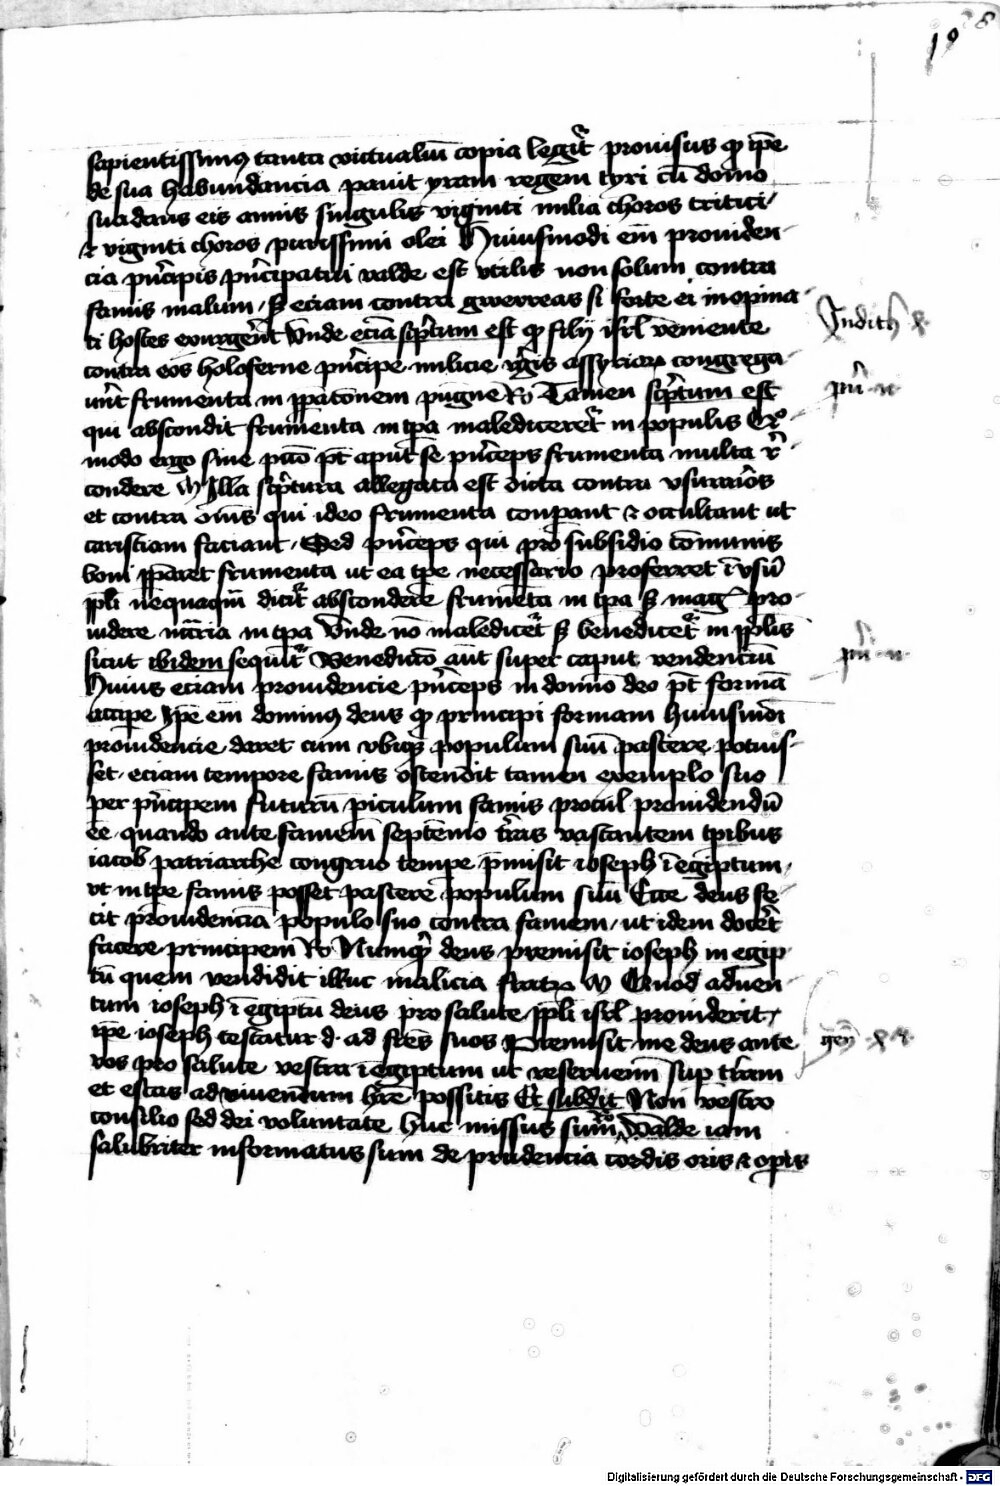 198
sapientissimus tanta victualiū copia legit͛ prouisus qͦ ip̄e
de sua habundancia pauit yram regem tyri cū domo
sua dans eis annis singulis viginti milia choros tritici /
⁊ viginti choros purissimi olei Huiusmodi em̄ prouiden-
cia pͥncipis pͥncipatui valde est vtilis non solum contra
famis malum / sꝫ eciam contra gwerreas si forte ei inopina-
ti hostes exurger̄et Vnde eciā scp̄tum est qͦ filij isrl̄ veniente
contra eos holoferne pͥncipe milicie regis assyrioꝝ congrega-
uer̄t frumenta in p̱patōnem pugne Rͦ Tamen scp̄tum est
qui abscondit frumenta in tp̄a maledicet͛ in populis Quo-
modo ergo sine pctō pt̄ aput se pͥnceps frumenta multa re-
condere M Illa scp̄tura allegata est dicta contra vsurarios
et contra om̄s qui ideo frumenta conpant ⁊ occultant ut
caristiam faciant / Sed pͥnceps qui pro subsidio cōmunis
boni p̱paret frumenta ut ea tp̄e necessario proferret ī vsū
pp̄li neq̄uaqm̄ dicit͛ abscondere frumēta in tp̄a sꝫ mag͛ pro-
uidere nēcīria in tp̄a Vnde nō maledicet͛ sꝫ benedicet͛ in pp̄lis
sicut ibidem sequit͛ Benedictō aut̄ super caput vendenciū
Huius eciam prouidencie pͥnceps in domīo deo pt̄ formā
accipe Ip̄e em̄ dominus deus qͦ principi formam huiusmōi
prouidencie daret cum vbiqꝫ populum suū pascere potuis-
set / eciam tempore famis ostendit tamen exemplo suo
per pͥncipem futurū piculum famis procul prouidendū
ee / quando ante famem septēnio tr̄ras vastantem tp̄ibus
iacob patriarche congruo tempe p̄misit ioseph ī egiptum /
vt in tp̄e famis posset pascere populum suū Ecce deus fe-
cit prouidenciā populo suo contra famem / ut idem docer̄t
facere principem Rͦ Nunqͥd deus premisit ioseph in egip-
tū quem vendidit illuc malicia fratrꝝ M Quod aduen-
tum ioseph ī egiptū deus pro salute pp̄li isrl̄ prouiderit /
ip̄e ioseph testatur d. ad fr̄es suos Premisit me deus ante
vos pro salute vestra ī egiptum ut reseruemī sup̱ tr̄ram
et escas ad viuendum hr̄e possitis Et subdit Non vestro
consilio sed dei voluntate huc missus sum Valde iam
salubriter informatus sum de prudencia cordis oris ⁊ op̱is
Judith
puͥ · xi ·
puͥ · xi ·
geñ · xlv ·
Digitalisierung gefördert durch die Deutsche Forschungsgemeinschaft - DFG